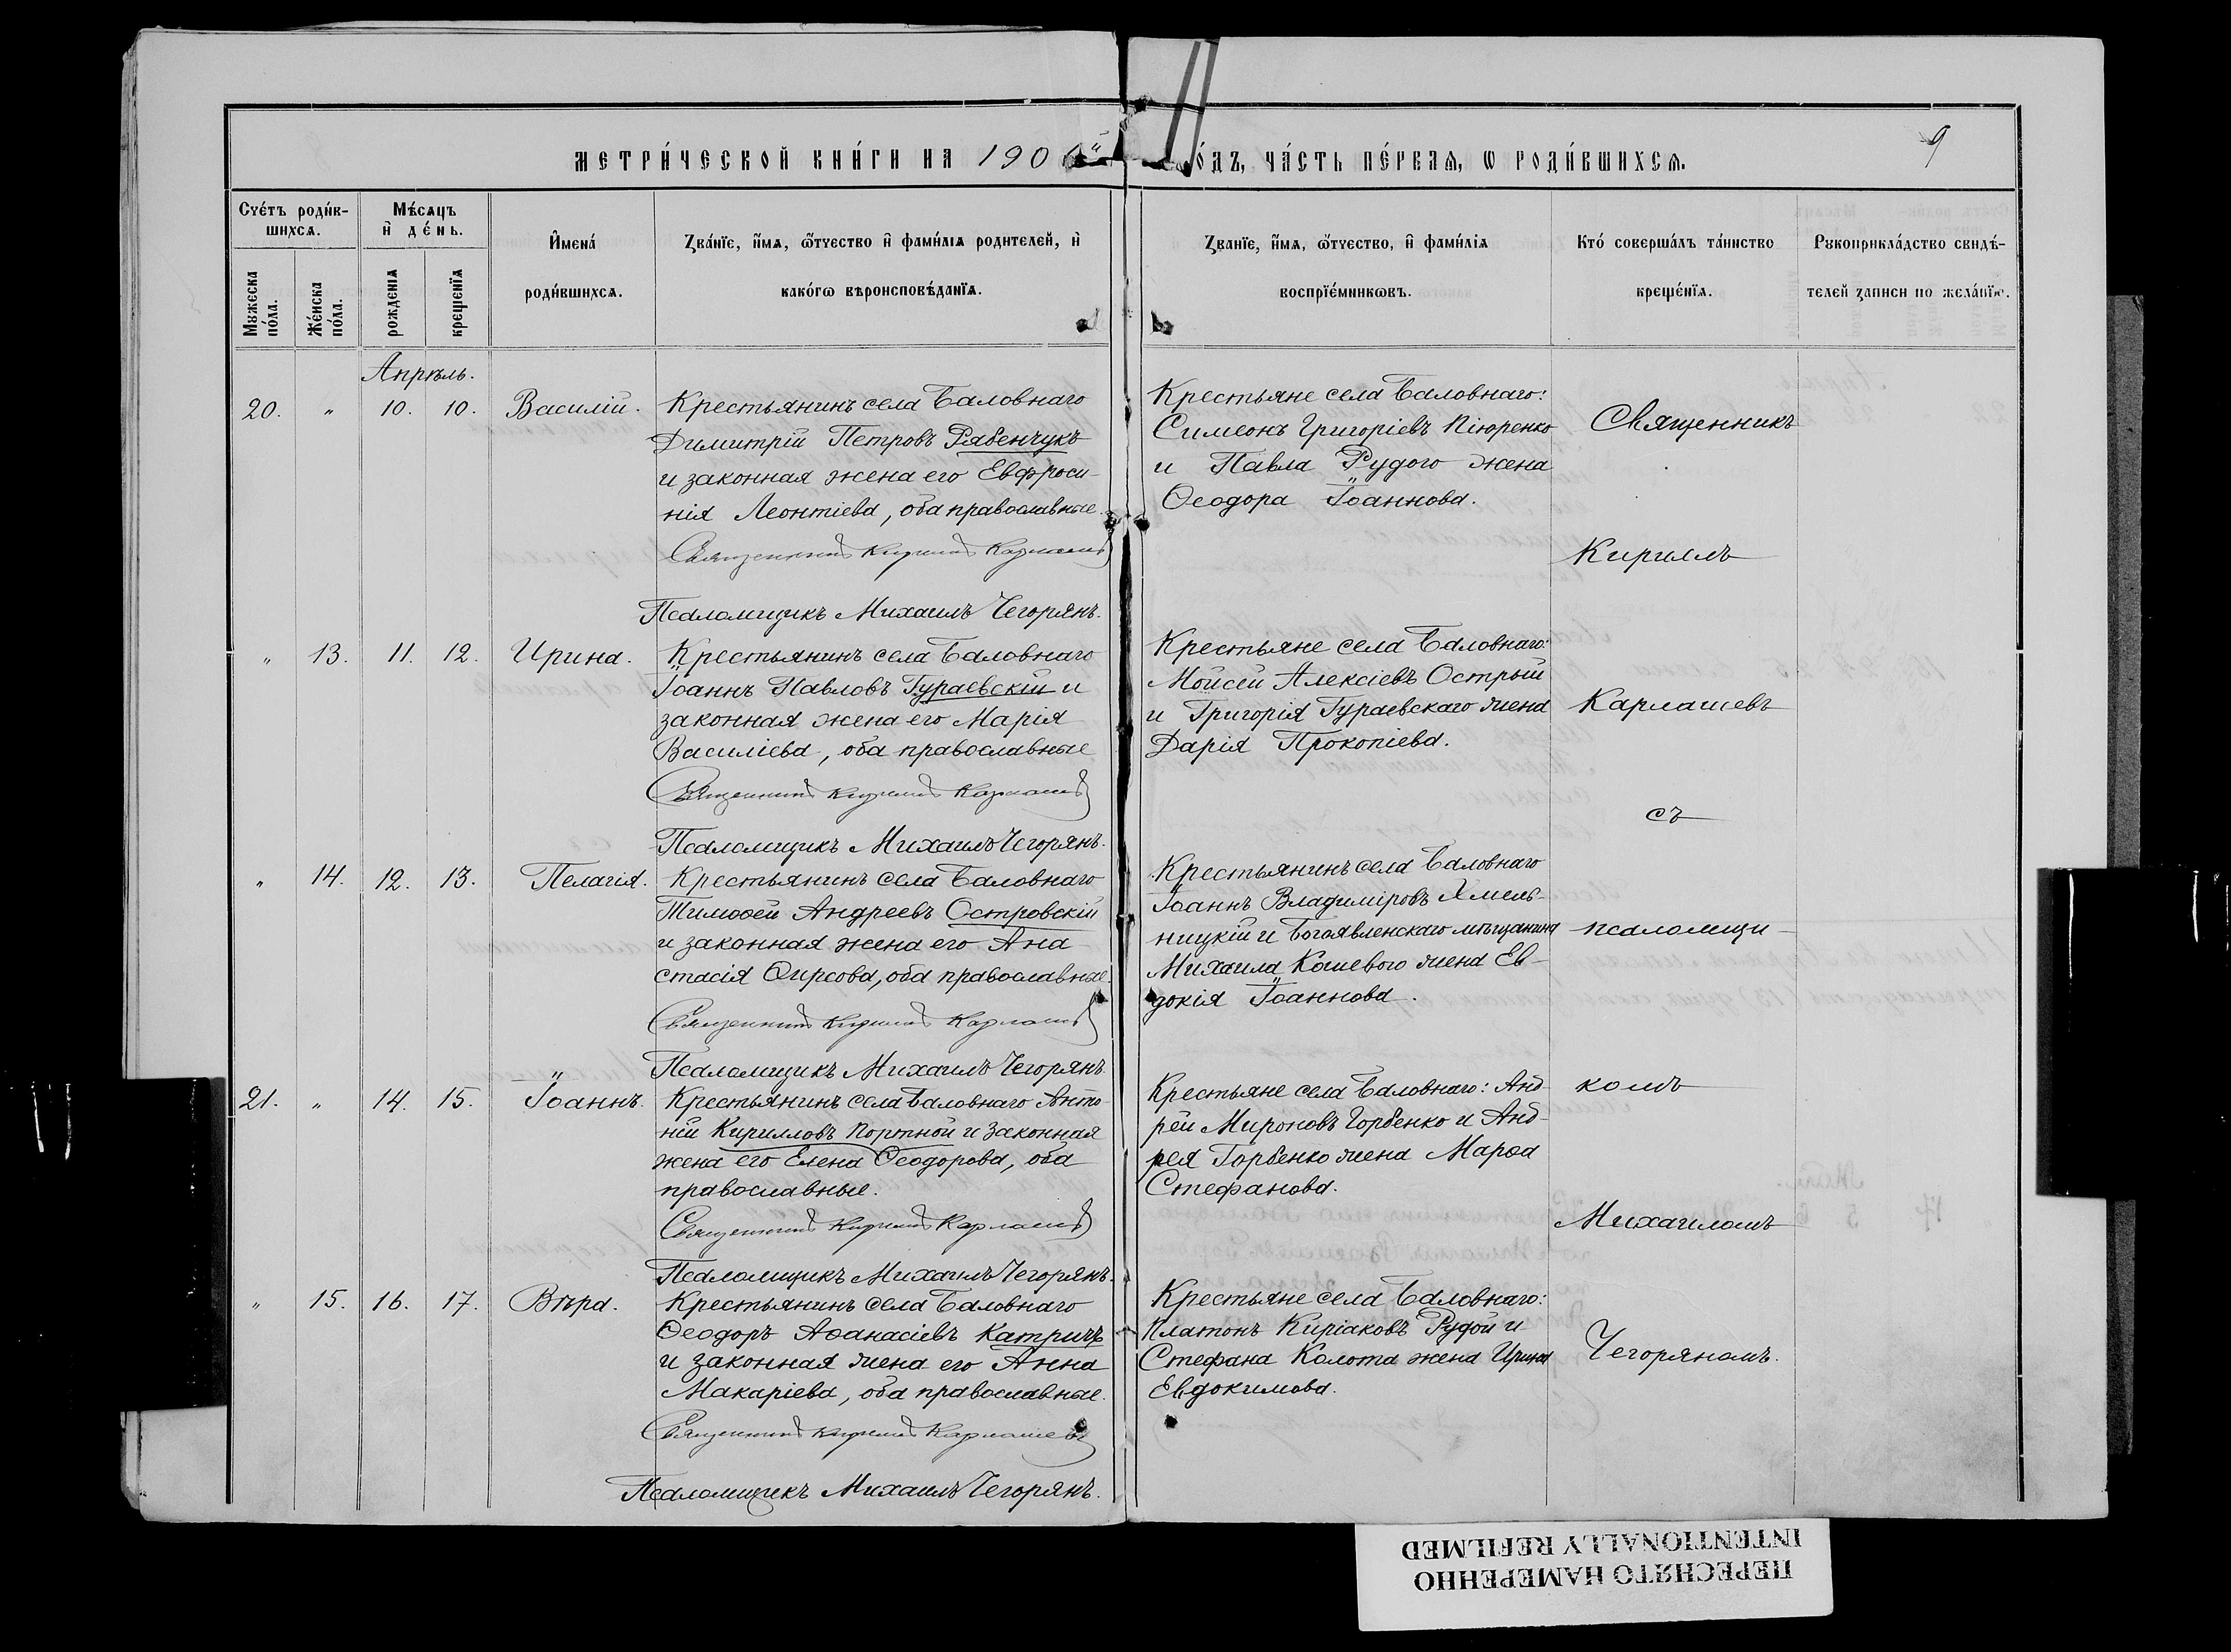 МЕТРИ́ЧЕСКОЙ КНИ́ГИ НА 190
О́ДЪ, ЧА́СТЬ ПЕ́РВАѦ, Ѡ РОДИ́ВШИХСѦ.
9
Сче́тъ роди́в-
шихсѧ.
Мѣ́сѧцъ
и҆ де́нь.
И҆мена́
роди́вшихсѧ.
Зва́нїе, и҆́мѧ, ѻ҆́тчество и҆ фами́лїѧ родителей, и҆
како́гѡ вѣроисповѣ́данїѧ.
Зва́нїе, и҆́мѧ, ѻ҆́тчество, и҆ фами́лїѧ
воспрїе́мникѡвъ.
Кто́ соверша́лъ та́инство
креще́нїѧ.
Рꙋкоприкла́дство свидѣ́-
телей записи по жела́нїю.
Мꙋжеска
по́ла.
Же́нска
по́ла.
рожденїѧ
крещенїѧ
Апрѣль.
20. " 10. 10. Василій.
Крестьянинъ села Баловнаго
Димитрій Петровъ Рябенчукъ
и законная жена его Евфроси-
нія Леонтіева, оба православные.
Священникъ Кириллъ Карлашевъ
Псаломщикъ Михаилъ Чегорянъ.
Крестьяне села Баловнаго:
Симеонъ Григоріевъ Піюренко
и Павла Рудого жена
Ѳеодора Іоаннова.
" 13. 11. 12. Ирина.
Крестьянинъ села Баловнаго
Іоаннъ Павловъ Гураевскій и
законная жена его Марія
Василіева, оба православные
Священникъ Кириллъ Карлашевъ
Псаломщикъ Михаилъ Чегорянъ.
Крестьяне села Баловнаго:
Мойсей Алексіевъ Острый
и Григорія Гураевскаго жена
Дарія Прокопіева.
" 14. 12. 13. Пелагія.
Крестьянинъ села Баловнаго
Тимоѳей Андреевъ Островскій
и законная жена его Ана
стасія Ѳирсова, оба православные.
Священникъ Кириллъ Карлашевъ
Псаломщикъ Михаилъ Чегорянъ
Крестьянинъ села Баловнаго
Іоаннъ Владиміровъ Хмель-
ницкій и Богоявленскаго мѣщанина
Михаила Кошевого жена Ев-
докія Іоаннова.
21. " 14. 15. Іоаннъ.
Крестьянинъ села Баловнаго Анто-
ній Кирилловъ Портной и законная
жена его Елена Ѳеодорова, оба
православные.
Священникъ Кириллъ Карлашевъ
Псаломщикъ Михаилъ Чегорянъ.
Крестьяне села Баловнаго: Анд-
рей Мироновъ Горбенко и Анд-
рея Горбенко жена Марѳа
Стефанова.
" 15. 16. 17. Вѣра.
Крестьянинъ села Баловнаго
Ѳеодоръ Аѳанасіевъ Катричъ
и законная жена его Анна
Макаріева, оба православные.
Священникъ Кириллъ Карлашевъ
Псаломщикъ Михаилъ Чегорянъ.
Крестьяне села Баловнаго:
Платонъ Киріаковъ Рудой и
Стефана Колота жена Ирина
Евдокимова.
Священникъ
Кириллъ
Карлашевъ
съ
псаломщи-
комъ
Михаиломъ
Чегоряномъ.
ПЕРЕСНЯТО НАМЕРЕННО
INTENTIONALLY REFILMED